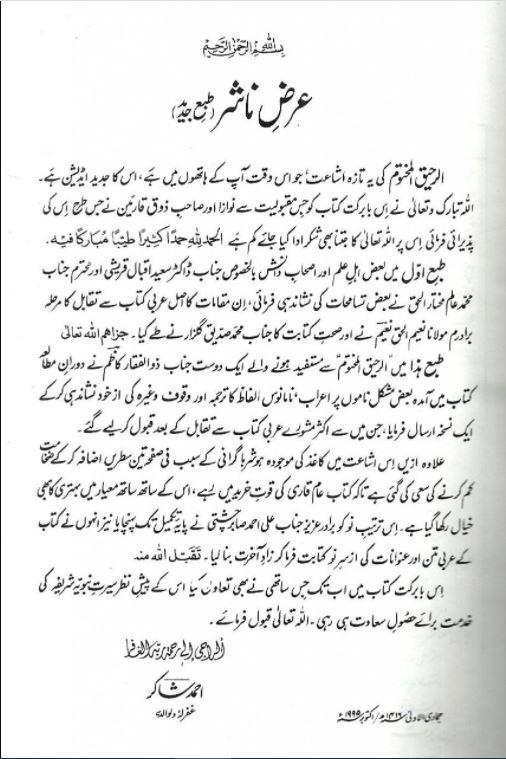 بِسْمِ اللهِ الرَّحْمٰنِ الرَّحِيْمِ
عرضِ ناشر (طبع جدید)
الرحیق المختوم کی یہ تازہ اشاعت، جو اس وقت آپ کے ہاتھوں میں ہے، اس کا جدید ایڈیشن ہے۔
اللہ تبارک وتعالیٰ نے اِس بابرکت کتاب کو جس مقبولیت سے نوازا اور صاحب ذوق قارئین نے جس طرح اس کی
پذیرائی فرمائی اِس پر اللہ تعالیٰ کا جتنا بھی شکر ادا کیا جائے کم ہے الحمد لله حمدًا كثيرًا طيبًا مباركًا فيه۔
طبع اوّل میں بعض اہلِ علم اور اصحابِ دانش بالخصوص جناب ڈاکٹر سعید اقبال قریشی اور محترم جناب
محمد عالم مختار الحق نے بعض تسامحات کی نشاندہی فرمائی، اِن مقامات کا اصل عربی کتاب سے تقابل کا مرحلہ
برادرم مولانا نعیم الحق نعیم نے اور صحتِ کتابت کا جناب محمد صدیق گلزار نے طے کیا۔ جزاهم الله تعالىٰ
طبع ہذا میں "الرحیق المختوم" سے مستفید ہونے والے ایک دوست جناب ذوالفقار کاظم نے دورانِ مطالعہ
کتاب میں آمدہ بعض مشکل ناموں پر اعراب، نامانوس الفاظ کا ترجمہ اور وقوف وغیرہ کی از خود نشاندہی کر کے
ایک نسخہ ارسال فرمایا، جن میں سے اکثر مشورے عربی کتاب سے تقابل کے بعد قبول کر لیے گئے۔
علاوہ ازیں اِس اشاعت میں کاغذ کی موجودہ ہوشربا گرانی کے سبب فی صفحہ تین سطریں اضافہ کر کے ضخامت
کم کرنے کی سعی کی گئی ہے تاکہ کتاب عام قاری کی قوتِ خرید میں رہے، اس کے ساتھ ساتھ معیار میں بہتری کا بھی
خیال رکھا گیا ہے۔ اِس ترتیبِ نو کو برادر عزیز جناب علی احمد صابر چشتی نے پایۂ تکمیل تک پہنچایا نیز انہوں نے کتاب
کے عربی متن اور عنوانات کی از سر نو کتابت فرما کر زادِ آخرت بنا لیا۔ تَقَبَّلَ الله منه
اِس بابرکت کتاب میں اب تک جس ساتھی نے بھی تعاون کیا اس کے پیشِ نظر سیرتِ نبویہ شریفہ کی
خدمت برائے حصولِ سعادت ہی رہی۔ اللہ تعالیٰ قبول فرمائے۔
الراجی إلى رحمة ربه الغفار
احمد شاکر
غفرلہٗ ولوالدیہ
جمادی الاولیٰ ۱۴۱۶ھ/ اکتوبر ۱۹۹۵ء